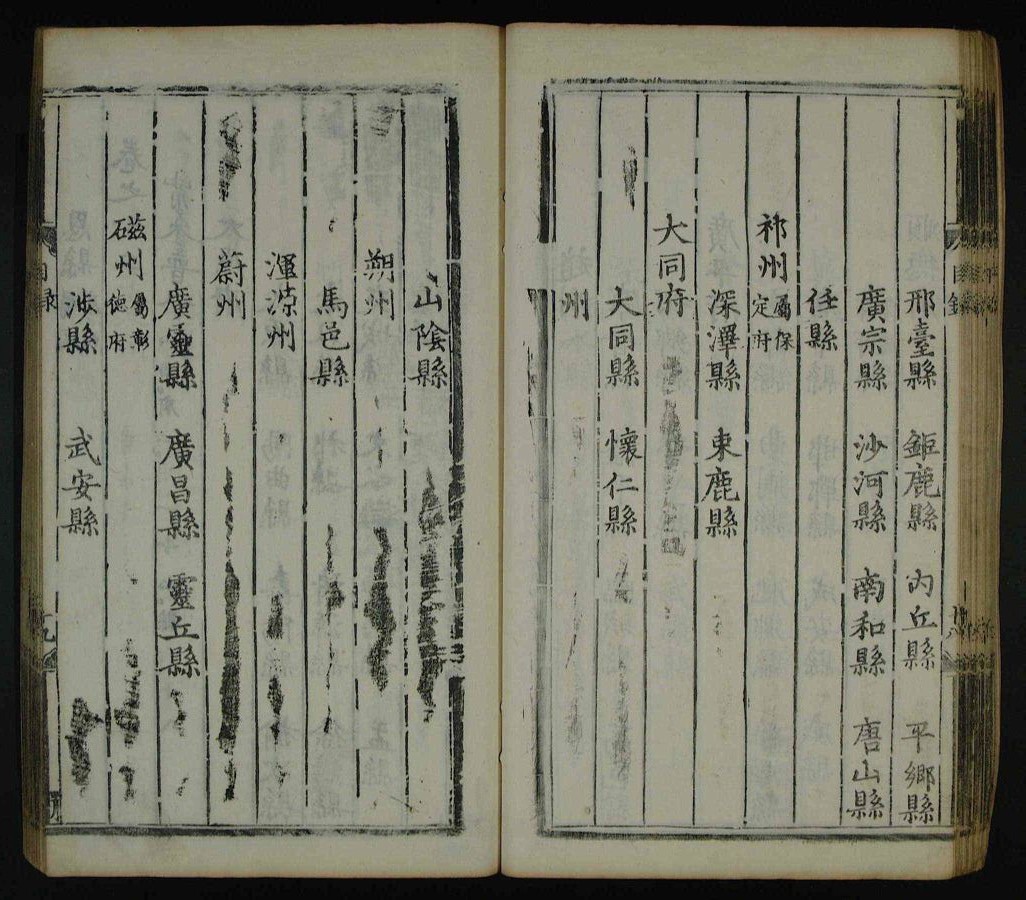 邢臺縣 鉅鹿縣 內丘縣 平鄉縣
廣宗縣 沙河縣 南和縣 唐山縣
任縣
祁州屬保定府
深澤縣 束鹿縣
大同府
大同縣 懷仁縣
州
山陰縣
朔州
馬邑縣
渾源州
蔚州
廣靈縣 廣昌縣 靈丘縣
磁州屬彰德府
涉縣 武安縣
目録